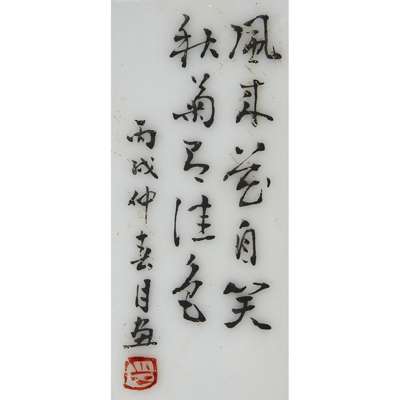 風来花自笑
秋菊有佳色
丙戌仲春月画